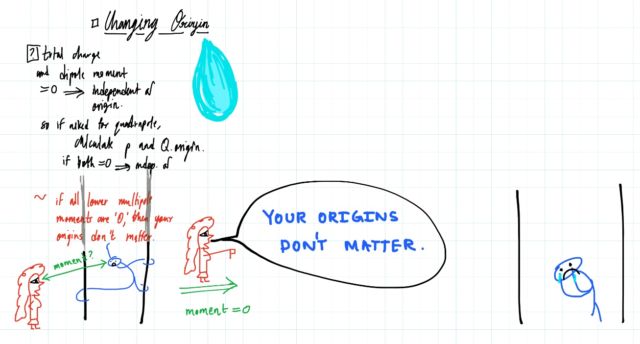 Changing Origin
[?] total charge
and dipole moment
=0 ⟹ independent of
origin.
so if asked for quadrapole,
calculate p and Q. origin.
if both =0 ⟹ indep. of
~ if all lower multipole
moment are '0,' then your
origins don't matter.
moment?
P
YOUR ORIGINS
DON'T MATTER.
moment =0